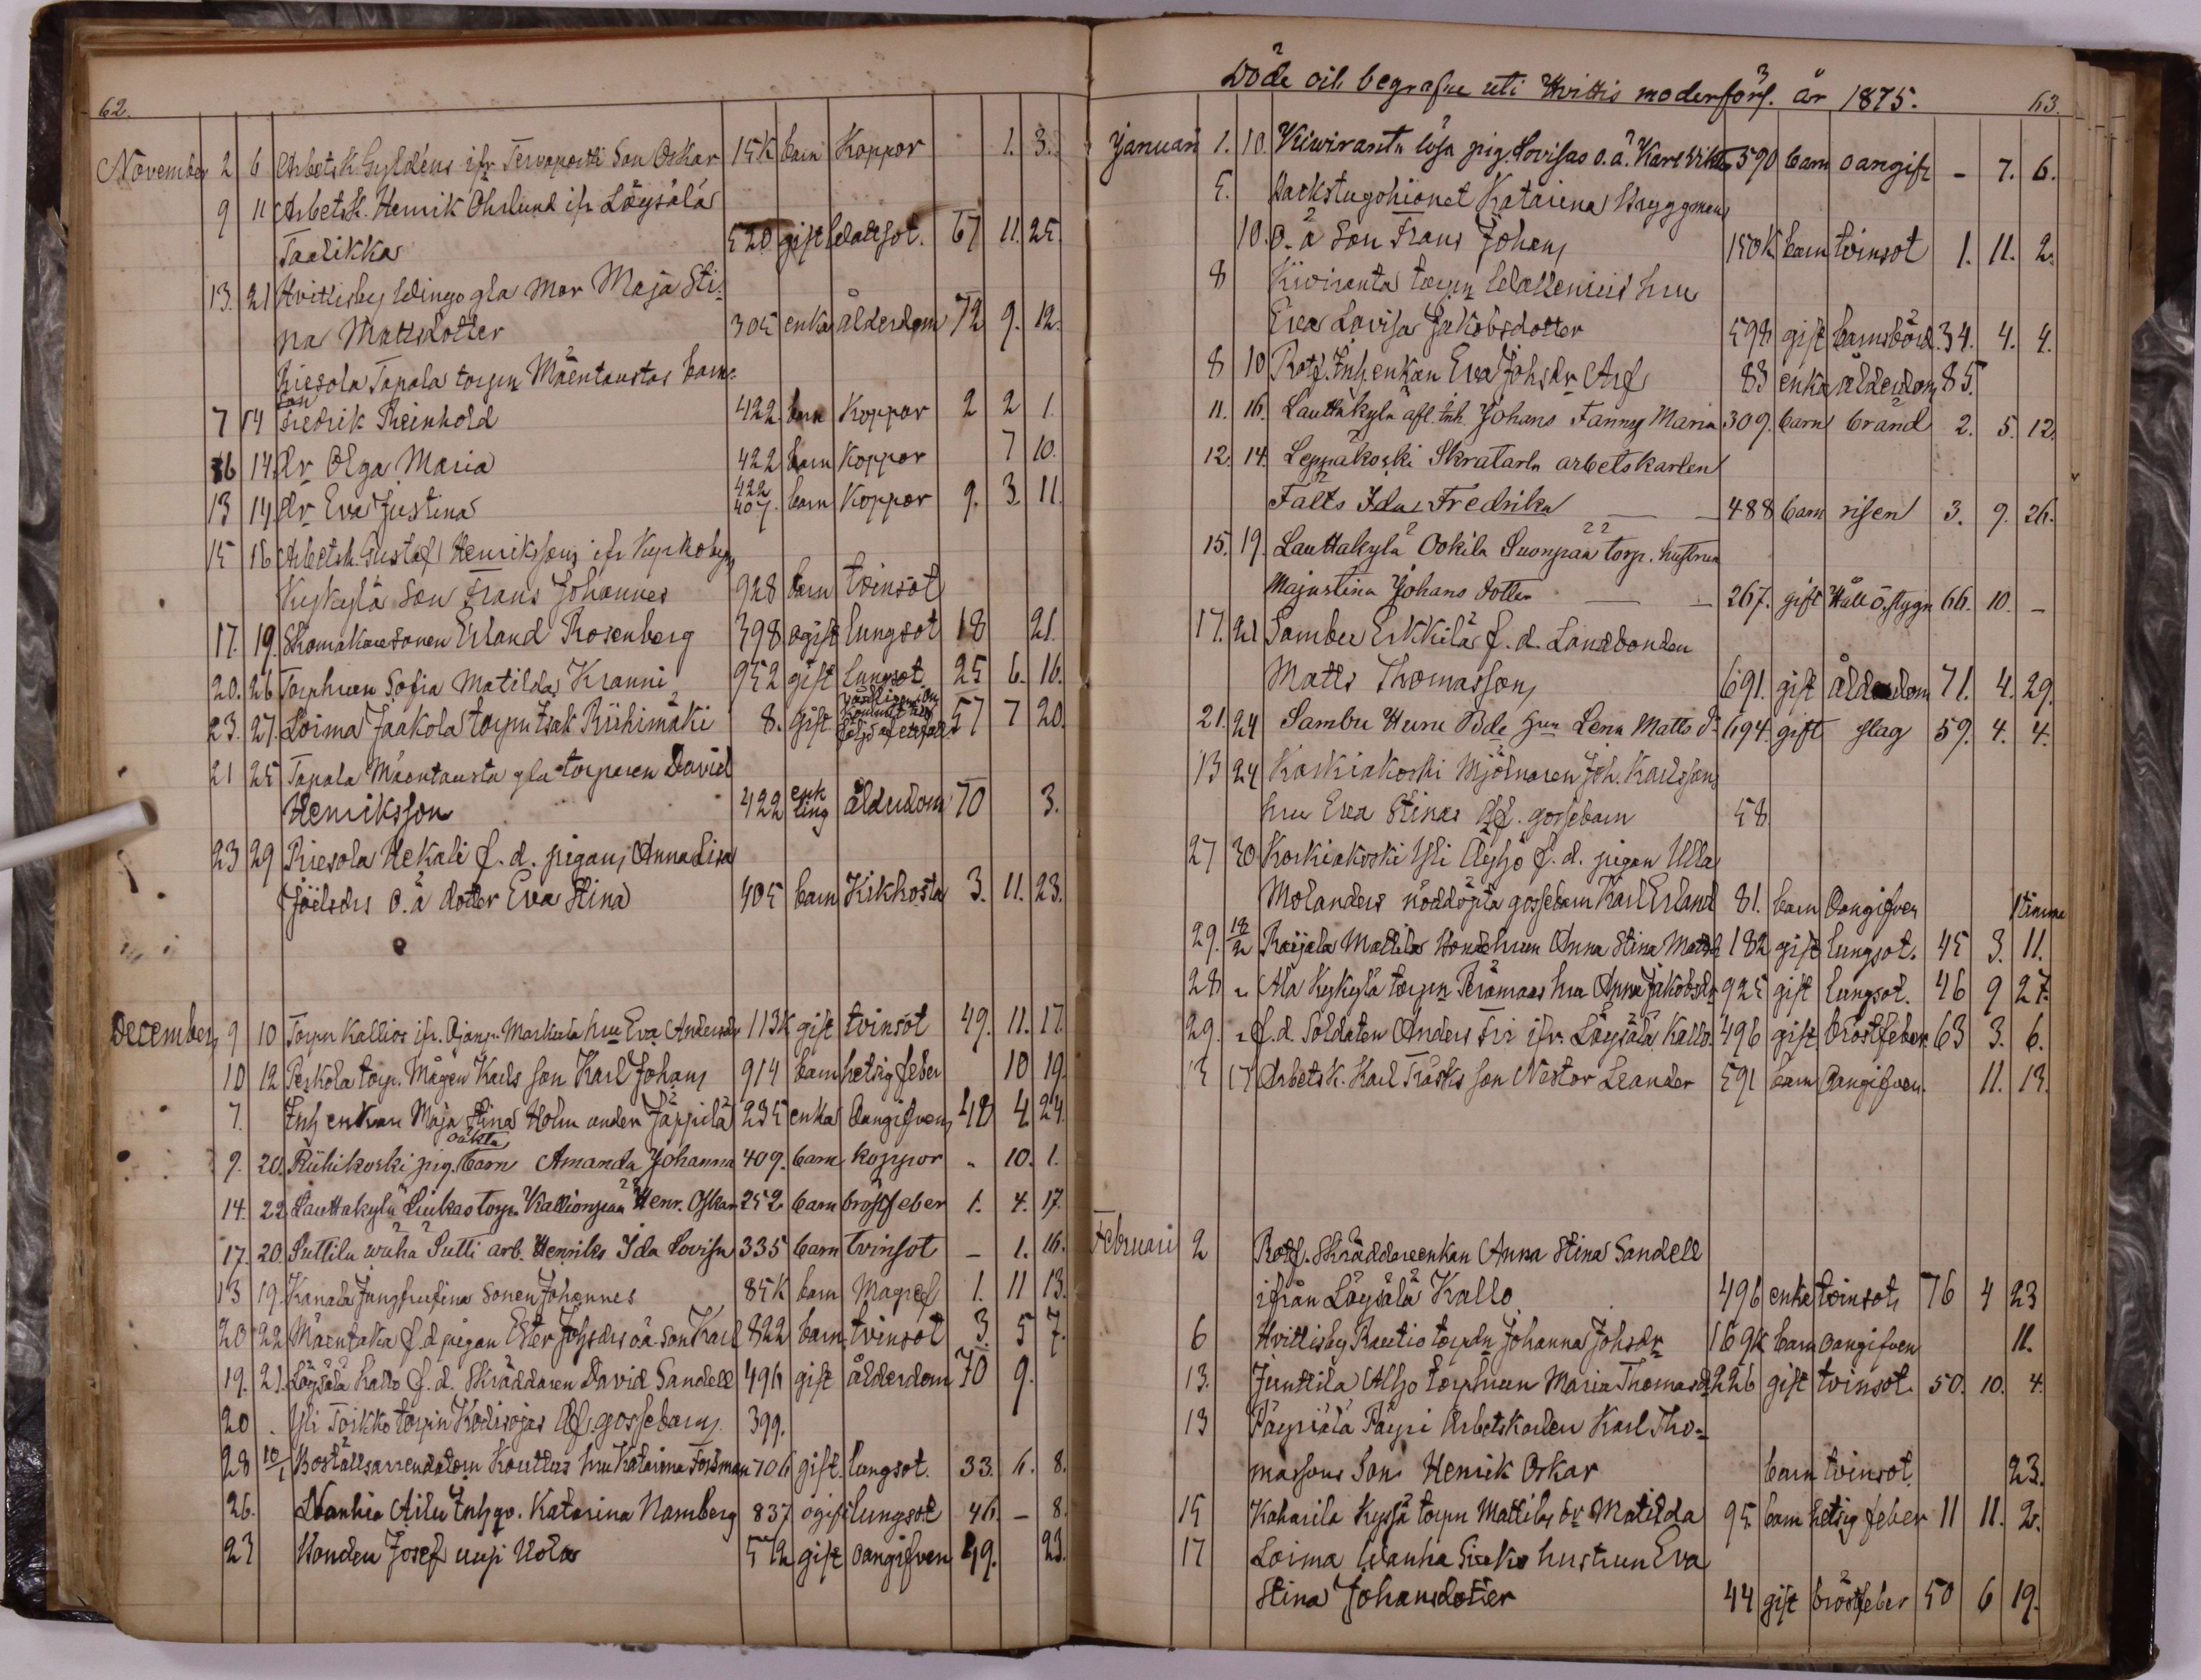 62.
November 2 6 Arbetsk. Gyldéns ifr Tervaportti Son Oskar 15K barn Koppor 1. 3.
9 11 Arbetsk. Henrik Öhrlund ifr Löysälä
Taalikka 520 gift wattsot. 67 11. 25.
13. 21 Hvittisby Wingo gla mor Maja Sti-
na Mattsdotter 305 enka ålderdom 72 9. 12.
Riesola Tapala torpn Mäentaustas barn:
son
7 14 Fredrik Reinhold 422 barn Koppor 2 2 1.
16 14. dr Olga Maria 422 barn Koppor 7 10.
13 14 dr Eva Justina 422 407. barn Koppor 9. 3. 11.
15 16 Arbetsk. Gustaf Henrikssons ifr
Kyykylä Son Frans Johannes 928 barn tvinsot
17. 19. Skomakaresonen Erland Rosenberg 398 ogift lungsot 18 21.
20. 26 Torphrun Sofia Matilda Kranni 952 gift lungsot 25 6. 16.
23. 27. Loima Jaakola torpn Isak Riihimäki 8. gift 57 7 20.
21 25 Tapala Mäentausta gla torparen David
Henriksson 422 enk ling ålderdom 70 3.
23 29 Riesola Hekali f.d. pigans Anna Lisa
Joelsdrs o.ä dotter Eva Stina 405 barn Kikhosta 3. 11. 23.
December 9 10 Torpn Kallios ifr. Markula hru Eva Andersdr 113K gift tvinsot 49. 11. 17.
10 12 Peskola torp. Mågen Karls son Karl Johan 914 barn hetsig feber 10 19.
7. Inh enkan Maja Stina Holm under Jäppilä 235 enka Oangifven 48 4 24.
oäkta
9. 20. Riihikoski pig. barn Amanda Johanna 409. barn koppor " 10. 1.
14. 22. Lauttakylä Luikas torp. Kallionpää Henr. Oskar 252 barn bröstfeber 1. 4. 17.
17. 20. Suttila wäha Sutti arb. Henriks Ida Lovisa 335 barn tvinsot – 1. 16.
13 19. Kanala Jungfrufina Sonen Johannes 85K barn Magref 1. 11 13.
20 22 Mäentaka f.d pigan Ester Johsdrs o.ä. son Karl 822 barn tvinsot 3. 5 7.
19. 21. Löysälä Kallo f.d. Skräddaren David Sandell 496 gift ålderdom 70 9.
20 . Yli Torkko torpn Kodisojas df. gossebarn 399.
28 10/1 Boställsarrendatorn Kouttus hru Katarina Forsman 706 gift. lungsot. 33. 6. 8.
26. Wanhia Ailu Inhqv. Katarina Namberg 837 ogift lungsot 46. – 8.
23 Bonden Josef uusi Uola 572 gift oangifven 49. 23.
Döde och begrafne uti Hvittis moderförs. år 1875.
63.
Januari 1. 10. Kiviranta lösa pig. Lovisas o.ä. Karl Viktor 590 barn oangifv – 7. 6.
5. Backstugohionet Katarina Bryggmans
10. o. ä Son Frans Johan 150K barn tvinsot 1. 11. 2.
8 Kiviranta torpn Wallenius hru
Eva Lovisa Jakobsdotter 598 gift barnsbörd. 34. 4. 4.
8 10 Rotf. Inh enkan Eva Johsdr Arf 83 enka ålderdom 85.
11. 16. Lauttakylä afl. inh. Johans Fanny Maria 309. barn brand 2. 5. 12.
12. 14. Leppäkoski Skratarla arbetskarlen
Fälts Ida Fredrika 488 barn risen 3. 9. 26.
15. 19. Lauttakylä Ookila Suonpää torp. hustrun
Majastina Johans dotter 267. gift Håll o. stygn 66. 10. –
17. 21 Sambu Erkkilä f.d. Landbonden
Matts Thomasson 691. gift ålderdom 71. 4. 29.
21. 24 Sambu Huru Bde hru Lena Matts dr 694. gift slag 59. 4. 4.
13 24 Koskiakoski Mjölnaren Joh. Karlssons
hru Eva Stinas df. gossebarn 58
27 30 Koskiakoski Yli Äyhö f.d. pigan Ulla
Molanders nöddöpta gossebarn Karl Erland 81. barn Oangifven 1 timme
29. 12/2 Raijala Mattila Bondehrun Anna Stina Mattsd 182 gift lungsot. 45 3. 11.
28 " Ala Kykylä torpn Perämaas hru Anna Jakobsdr 925 gift lungsot. 46 9 27.
29. " f.d. Soldaten Anders Fri ifr. Löysälä Kallo. 496 gift. bröstfeber. 63 3. 6.
3 17 Arbetsk. Karl Träsks son Nestor Leander 591 barn Oangifven. 11. 13.
Februari 2 Rotf. Skräddareenkan Anna Stina Sandell
ifrån Löysälä Kallo 496 enka tvinsot, 76 4 23
6 Hvittisby Rautio torpdr Johanna Johsdr 169K barn oangifven 11.
13. Junttila Alho torphrun Maria Thomasd 226 gift tvinsot. 50. 10. 4.
13 Päyriälä Päyri Arbetskarlen Karl Tho-
massons Son Henrik Oskar barn tvinsot. 23.
15 Kaharila Kyssä torpn Mattilas dr Matilda 95. barn hetsig feber 11 11. 2.
17 Loima Wanha Sirko hustrun Eva
Stina Johansdotter 44 gift bröstfeber 50 6 19.